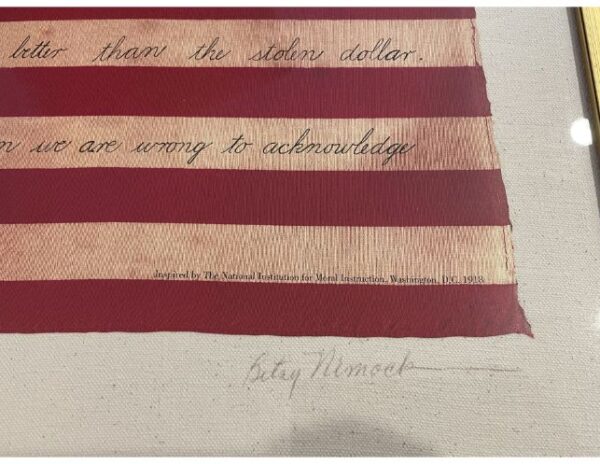 better than the stolen dollar.
we are wrong to acknowledge
Inspired by The National Institution for Moral Instruction, Washington, D.C. 1918
Betsy Nimock